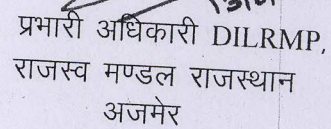 प्रभारी अधिकारी DILRMP,
राजस्व मण्डल राजस्थान
अजमेर